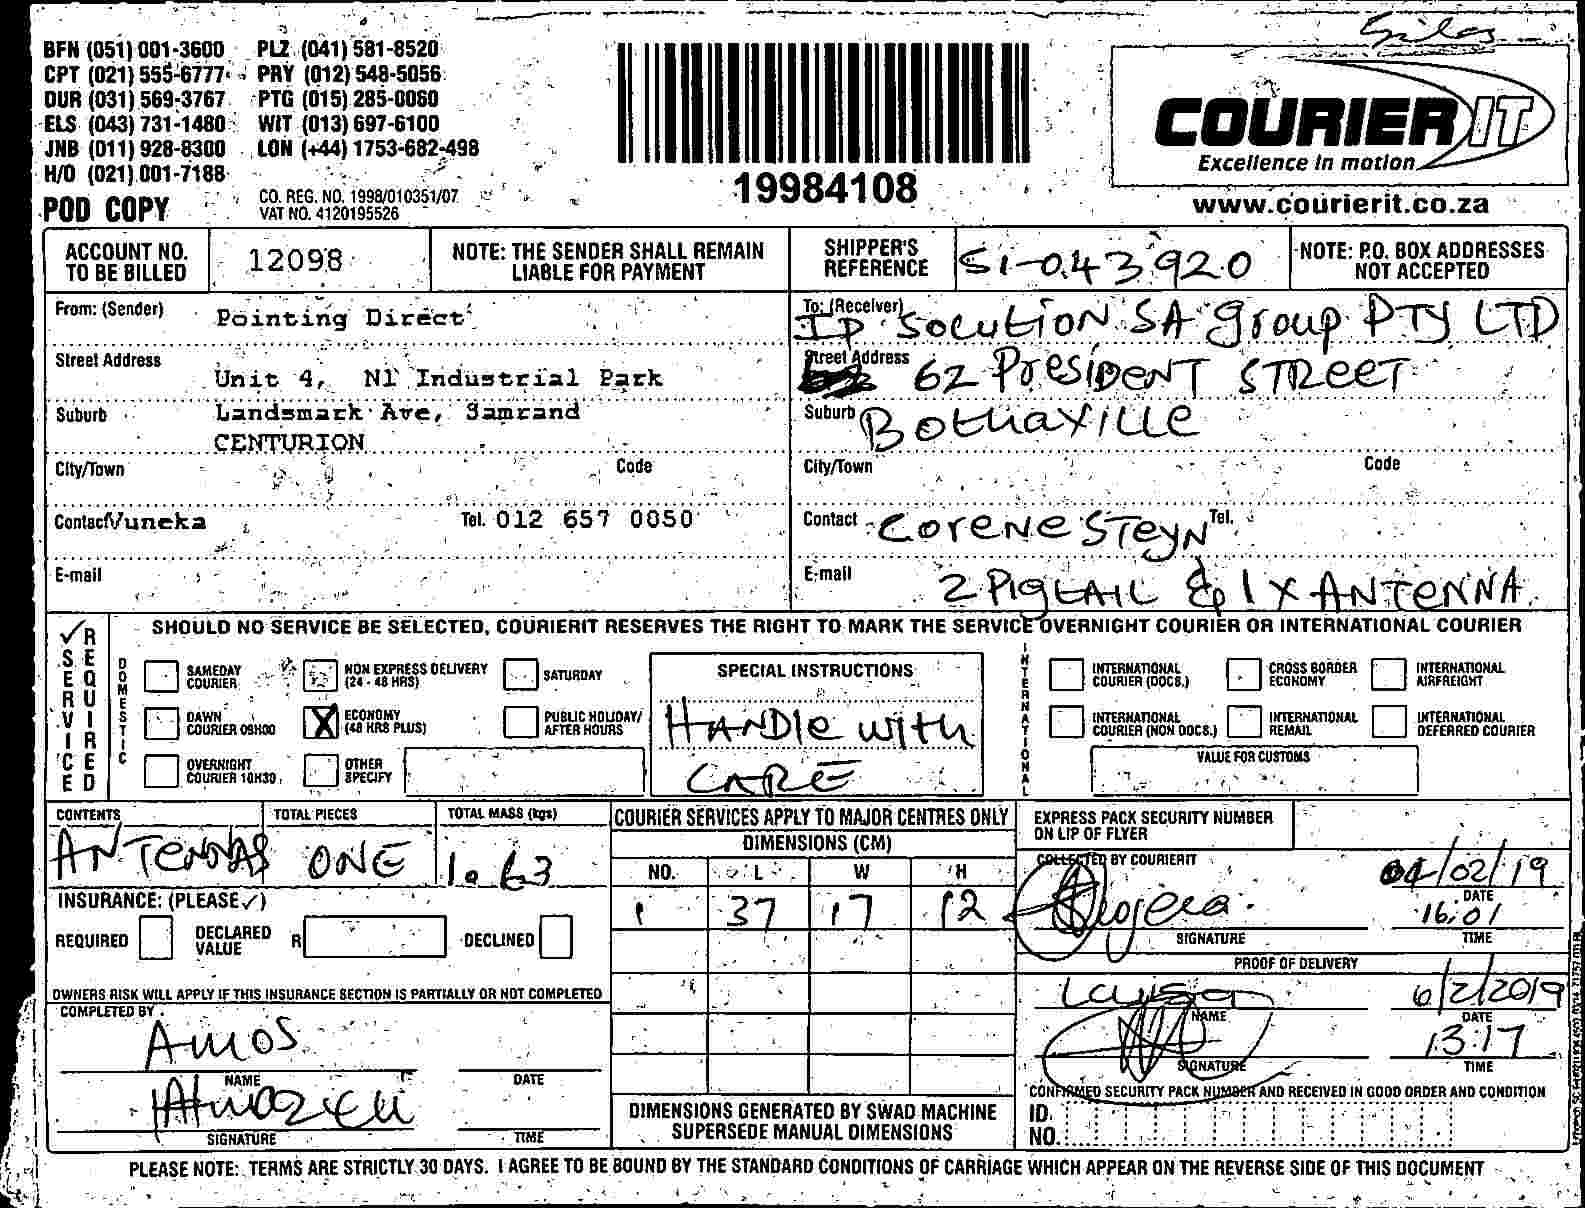 BFN (051) 001-3600 PLZ (041) 581-8520
CPT (021) 555-6777 PRY (012) 548-5056
DUR (031) 569-3767 PTG (015) 285-0060
ELS (043) 731-1480 WIT (013) 697-6100
JNB (011) 928-8300 LON (+44) 1753-682-498
H/O (021) 001-7188
POD COPY
CO. REG. NO. 1998/010351/07
VAT NO. 4120195526
19984108
COURIER IT
Excellence in motion
www.courierit.co.za
ACCOUNT NO. TO BE BILLED 12098
NOTE: THE SENDER SHALL REMAIN LIABLE FOR PAYMENT
SHIPPER'S REFERENCE SI-043920
NOTE: P.O. BOX ADDRESSES NOT ACCEPTED
From: (Sender) Pointing Direct
Street Address Unit 4, N1 Industrial Park
Suburb Landsmark Ave, Samrand
CENTURION
City/Town Code
Contact Vuneka Tel. 012 657 0050
E-mail
To: (Receiver) IP Solution SA Group PTY LTD
Street Address 62 President Street
Suburb Bothaville
City/Town Code
Contact Corene Steyn Tel.
E-mail 2 Pigtail & 1 X Antenna
SHOULD NO SERVICE BE SELECTED, COURIERIT RESERVES THE RIGHT TO MARK THE SERVICE OVERNIGHT COURIER OR INTERNATIONAL COURIER
✓ SERVICE REQUIRED
DOMESTIC
SAMEDAY COURIER
NON EXPRESS DELIVERY (24 - 48 HRS)
SATURDAY
DAWN COURIER 09H00
X ECONOMY (48 HRS PLUS)
PUBLIC HOLIDAY/ AFTER HOURS
OVERNIGHT COURIER 10H30
OTHER SPECIFY
SPECIAL INSTRUCTIONS
Handle with
care
INTERNATIONAL
INTERNATIONAL COURIER (DOCS.)
CROSS BORDER ECONOMY
INTERNATIONAL AIRFREIGHT
INTERNATIONAL COURIER (NON DOCS.)
INTERNATIONAL REMAIL
INTERNATIONAL DEFERRED COURIER
VALUE FOR CUSTOMS
CONTENTS TOTAL PIECES TOTAL MASS (kgs)
Antennas ONE 1.63
INSURANCE: (PLEASE ✓)
REQUIRED DECLARED VALUE R DECLINED
OWNERS RISK WILL APPLY IF THIS INSURANCE SECTION IS PARTIALLY OR NOT COMPLETED
COMPLETED BY
Amos
NAME DATE
SIGNATURE TIME
COURIER SERVICES APPLY TO MAJOR CENTRES ONLY
DIMENSIONS (CM)
NO. L W H
1 37 17 12
DIMENSIONS GENERATED BY SWAD MACHINE SUPERSEDE MANUAL DIMENSIONS
EXPRESS PACK SECURITY NUMBER ON LIP OF FLYER
COLLECTED BY COURIERIT
04/02/19
DATE
16:01
SIGNATURE TIME
PROOF OF DELIVERY
6/2/2019
NAME DATE
13:17
SIGNATURE TIME
CONFIRMED SECURITY PACK NUMBER AND RECEIVED IN GOOD ORDER AND CONDITION
ID. NO.
PLEASE NOTE: TERMS ARE STRICTLY 30 DAYS. I AGREE TO BE BOUND BY THE STANDARD CONDITIONS OF CARRIAGE WHICH APPEAR ON THE REVERSE SIDE OF THIS DOCUMENT